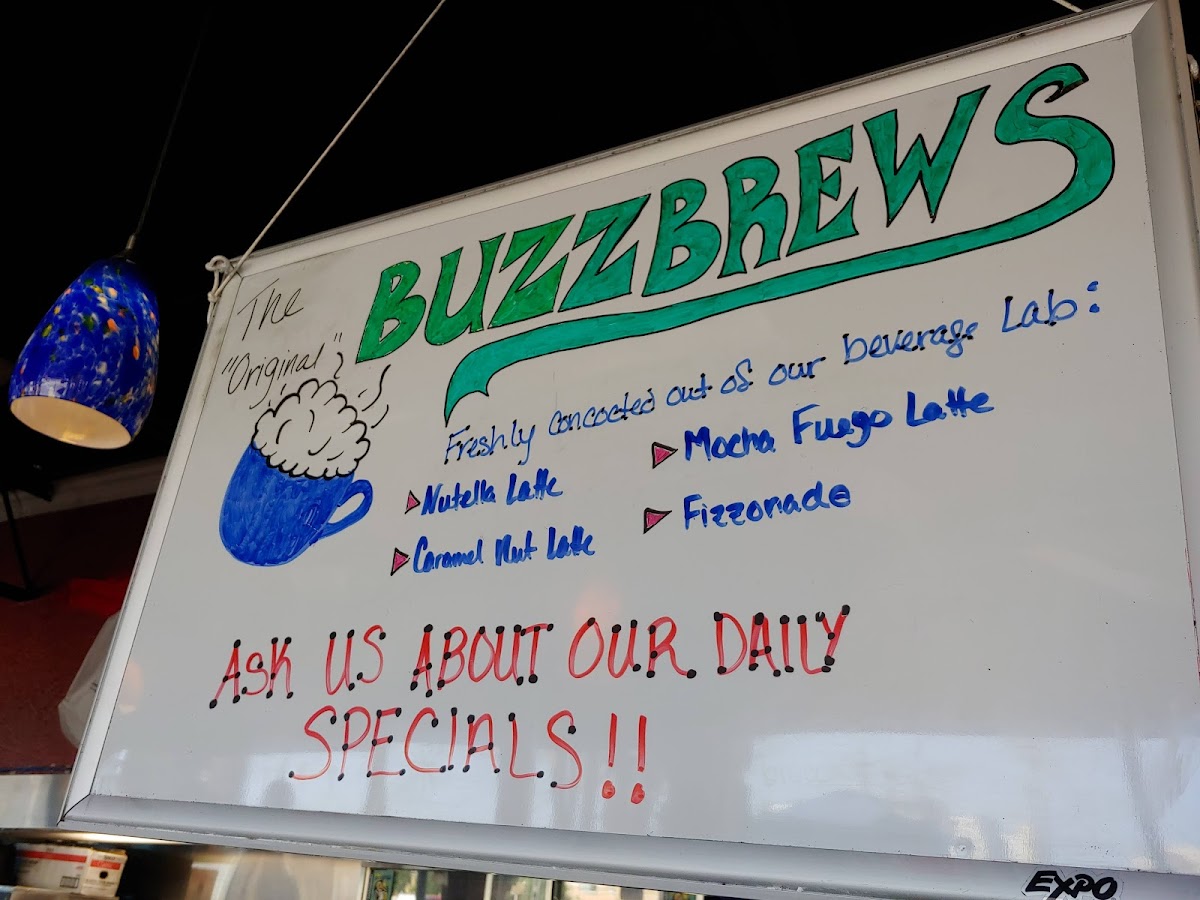 The
"Original"
BUZZBREWS
Freshly concocted out of our beverage Lab:
Nutella Latte
Caramel Nut Latte
Mocha Fuego Latte
Fizzonade
ASK US ABOUT OUR DAILY
SPECIALS!!
EXPO